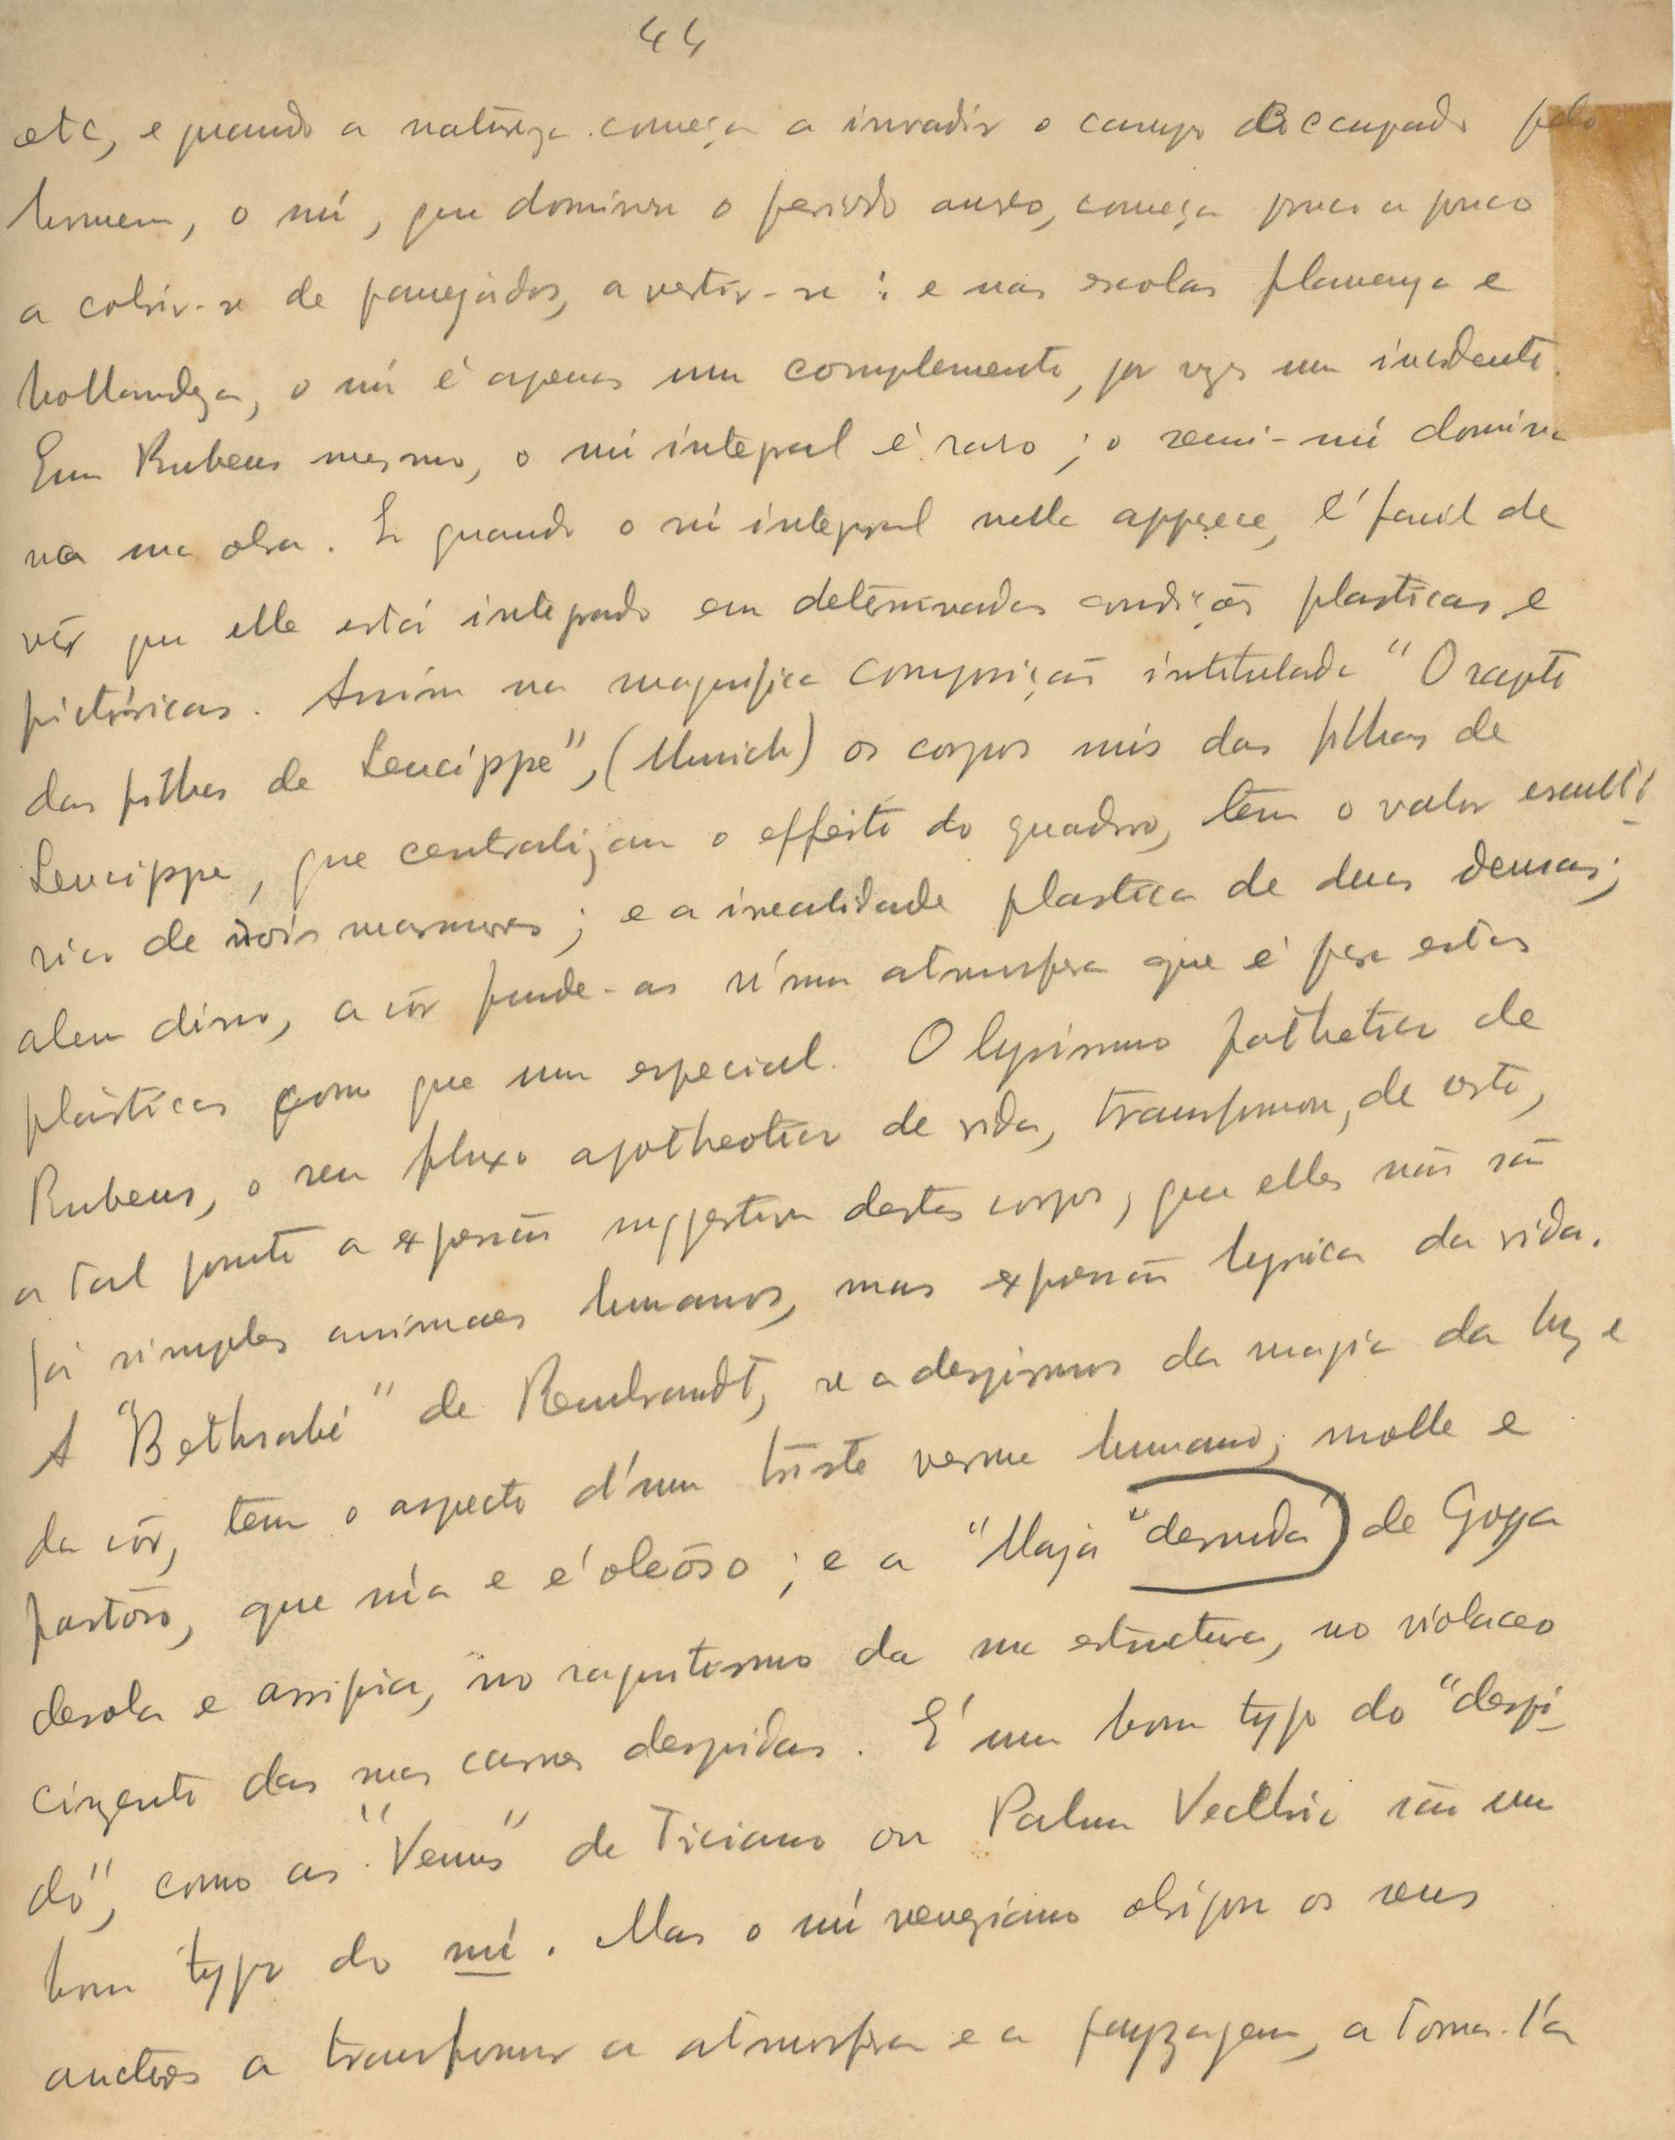 44
etc, e quando a natureza começa a invadir o campo occupado pelo
homem, o nú, que dominou o periodo aureo, começa pouco a pouco
a cobrir-se de panejados, a vestir-se : e nas escolas flamenga e
hollandeza, o nú é apenas um complemento, por vezes um incidente.
Em Rubens mesmo, o nú integral é raro ; o semi-nú domina
na sua obra. E quando o nú integral nella apparece, é facil de
vêr que elle está integrado em determinadas condições plasticas e
pictóricas. Assim na magnifica composição intitulada "O rapto
das filhas de Leucippe", (Munich) os corpos nús das filhas de
Leucippe, que centralizam o effeito do quadro, tem o valor escultó-
rico de dois marmores ; e a irrealidade plastica de duas deusas ;
alem disso, a côr funde-as n'uma atmosfera que é para estas
plásticas como que um especial. O lyrismo pathetico de
Rubens, o seu fluxo apotheotico de vida, transformou, de resto,
a tal ponto a expressão suggestiva destes corpos, que elles não são
já simples animaes humanos, mas expressão lyrica da vida.
A "Bethsabé" de Rembrandt, se a despirmos da magia da luz e
da côr, tem o aspecto d'um triste verme humano, molle e
pastôso, que súa e é oleôso ; e a "Maja "desnuda" de Goya
desola e arripia, no raquitismo da sua estructura, no violaceo
cinzento das suas carnes despidas. É um bom typo do "despi-
do", como as "Venus" de Ticiano ou Palma Vecchio são um
bom typo do nú. Mas o nú veneziano obrigou os seus
auctores a transformar a atmosfera e a payzagem, a torna-l'a